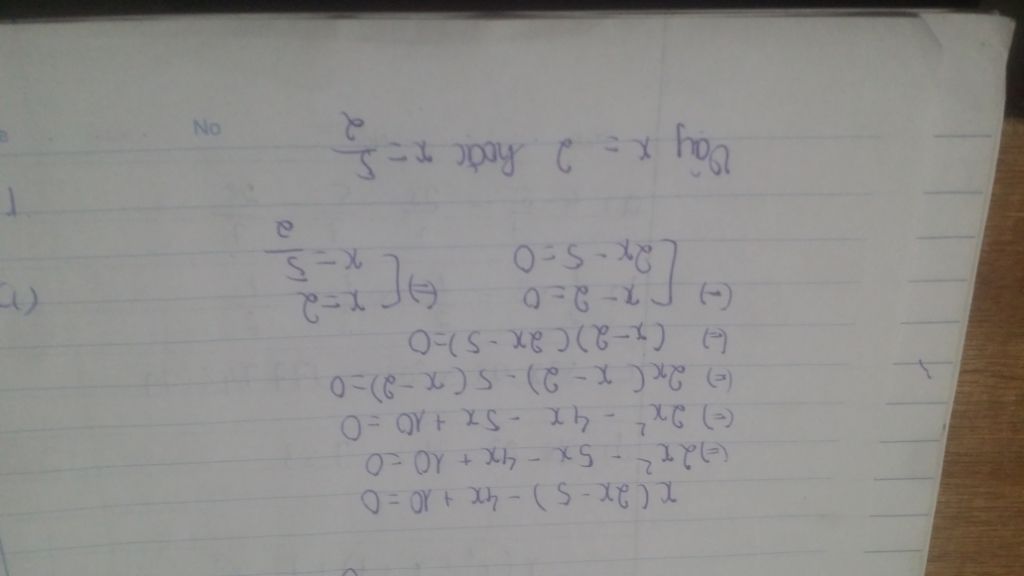 x(2x-5)-4x+10=0
(=) 2x²-5x-4x+10=0
(=) 2x²-4x-5x+10=0
(=) 2x(x-2)-5(x-2)=0
(=) (x-2)(2x-5)=0
(=) [x-2=0 (=) [x=2
2x-5=0 x=5/2
Vậy x=2 hoặc x=5/2
No